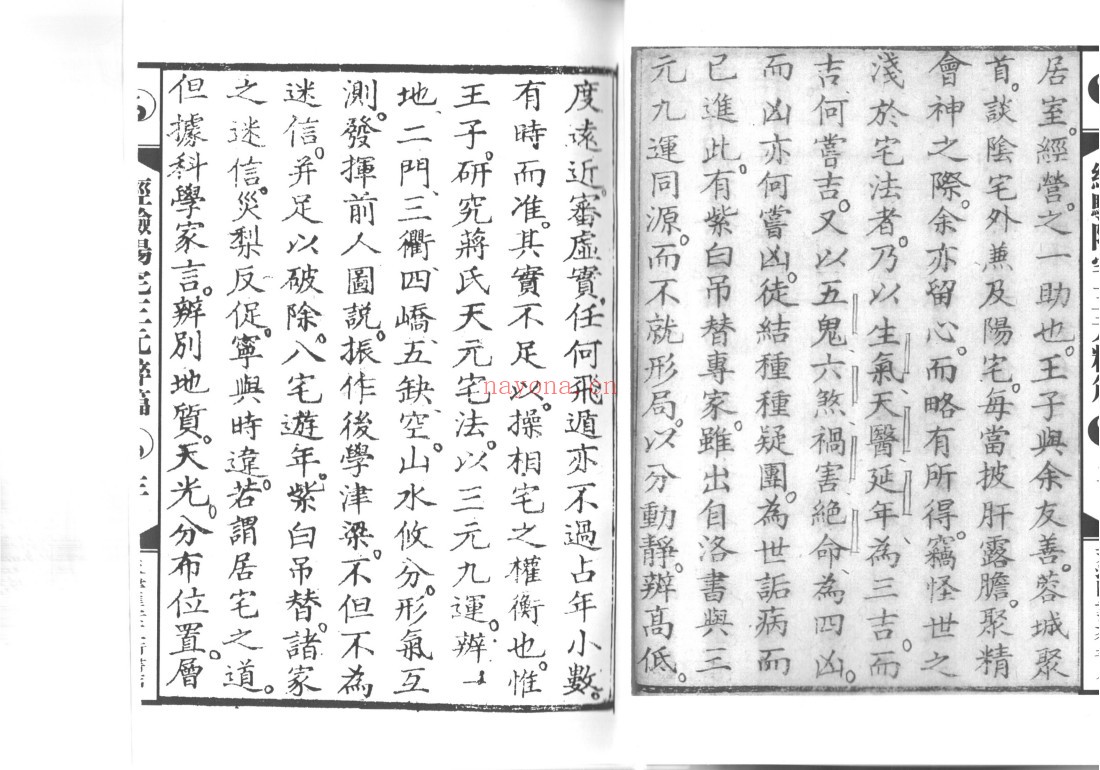 居室。經營之一助也。王子與余友善。蓉城聚
首。談陰宅外。兼及陽宅。每當披肝露膽。聚精
會神之際。余亦留心。而略有所得。竊怪世之
淺於宅法者。乃以生氣天醫延年為三吉。而
吉何嘗吉。又以五鬼六煞禍害絕命為四凶。
而凶亦何嘗凶。徒結種種疑團。為世詬病而
已進此。有紫白吊替專家。雖出自洛書。與三
元九運同源。而不就形局。以分動靜。辨高低。
度遠近。審虛實。任何飛遁。亦不過占年小數。
有時而准。其實不足以操相宅之權衡也。惟
王子。研究蔣氏天元宅法。以三元九運。辨一
地、二門、三衢、四嶠、五缺空。山水攸分。形氣互
測。發揮前人圖說。振作後學津梁。不但不為
迷信。并足以破除。八宅遊年。紫白吊替。諸家
之迷信。災梨反促。寧與時違。若謂居宅之道。
但據科學家言。辨別地質。天光。分布位置。層
經驗陽宅三元
nayona.cn